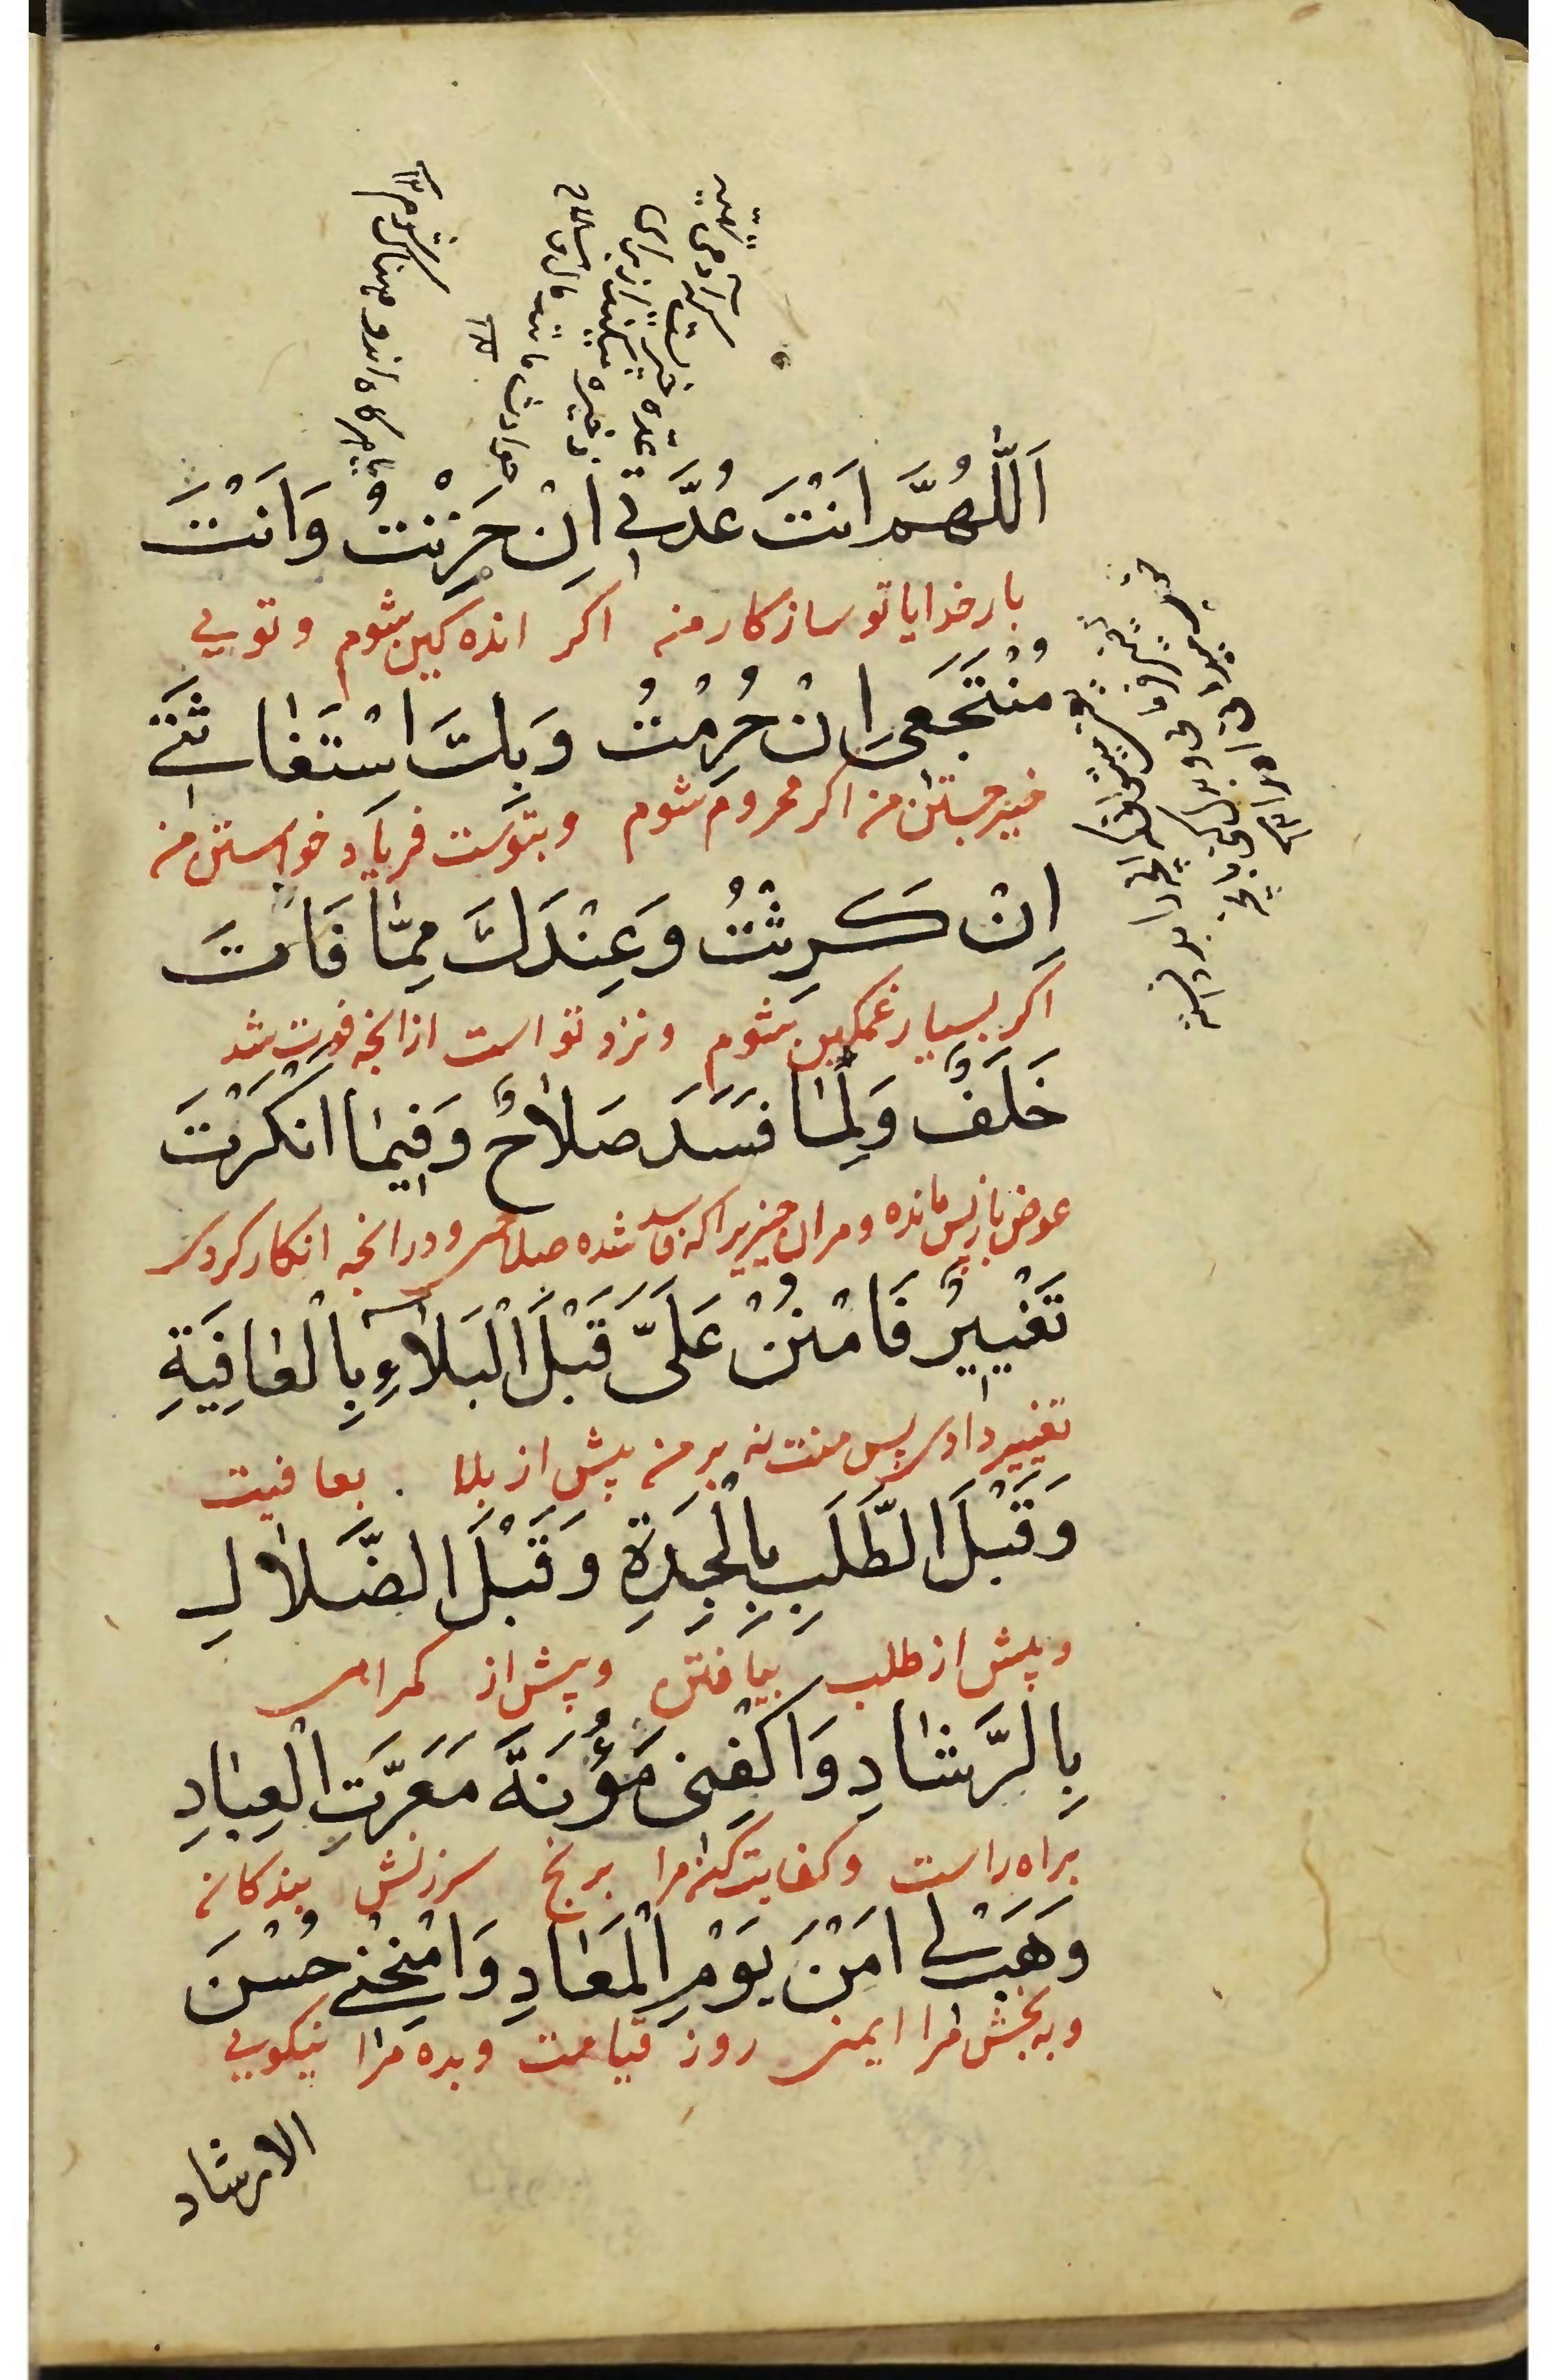 اَللّٰهُمَّ اَنْتَ عُدَّتِي اِنْ حَزِنْتُ وَاَنْتَ
بار خدایا تو ساز کار منی اکر اندهکین بشوم و تویی
مُنْتَجَعِی اِنْ حُرِمْتُ وَبِكَ اسْتِغَاثَتِي
خیر جستن من اکر محروم شوم وبتوست فریاد خواستن من
اِنْ كَرِثْتُ وَعِنْدَكَ مِمَّا فَاتَ
اکر بسیار غمکین بشوم ونزد تو است ازانچه فوت شد
خَلَفٌ وَلِمَا فَسَدَ صَلَاحٌ وَفِيمَا اَنْكَرْتَ
عوض باز پس مانده ومران چیزیرا که فاسد شده صلاحی ودرانچه انکار کردی
تَغْيِيرٌ فَامْنُنْ عَلَيَّ قَبْلَ الْبَلَاءِ بِالْعَافِيَةِ
تغییر دادنی پس منت نه بر من پیش از بلا بعافیت
وَقَبْلَ الطَّلَبِ بِالْجِدَةِ وَقَبْلَ الضَّلَالِ
وپیش از طلب بیافتن وپیش از کمراهی
بِالرَّشَادِ وَاكْفِنِی مَؤُنَةَ مَعَرَّتِ الْعِبَادِ
براه راست وکفایت کن مرا برنج سرزنش بندکان
وَهَبْ لِي اَمْنَ يَوْمِ الْمَعَادِ وَامْنِحْنِي حُسْنَ
وبه بخش مرا ایمنی روز قیامت وبده مرا نیکویی
الارشاد